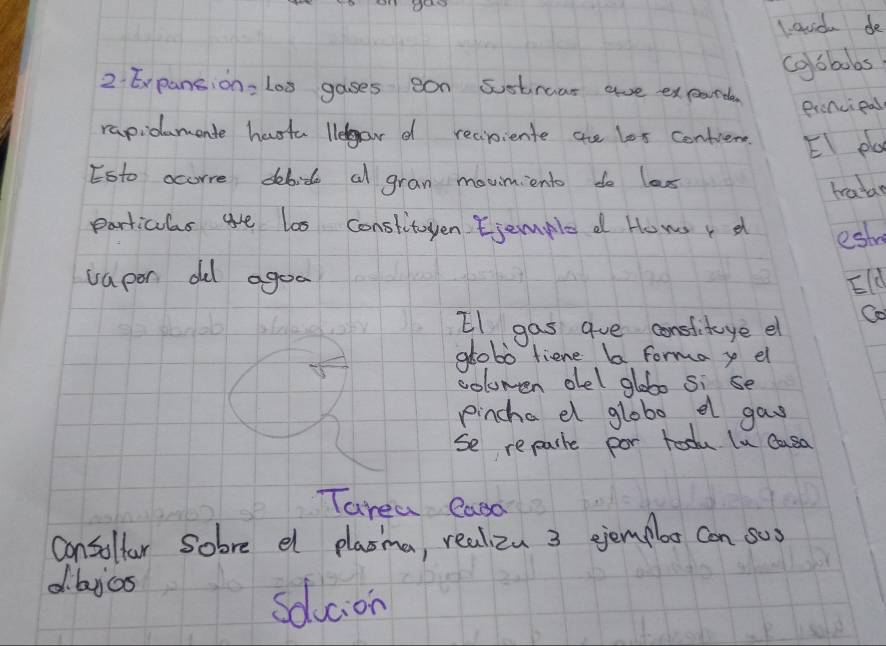 es un gas
2-Expansión= Los gases son sustncias que expanden
rapidamente hasta llegar al recipiente que los contiene.
Esto ocurre debido al gran movimiento de las
particulas que los constituyen. Ejemplo el Humo y el
vapor del agua
El gas que constituye el
globo tiene la forma y el
volumen del globo si se
pincha el globo el gas
se reparte por toda la casa
Tarea Casa
Consultar sobre el plasma, realiza 3 ejemplos con sus
dibujos
Solución
de
principal
El
estr
El
Co